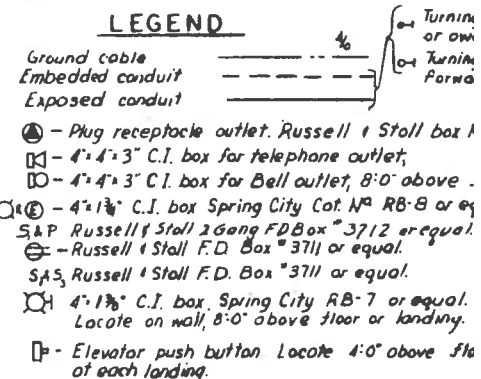 LEGEND
4/0
Turning
or
Ground cable
Turning
Embedded conduit
Forwa
Exposed conduit
- Plug receptacle outlet. Russell & Stoll box
- 4"x 4"x 3" C.I. box for telephone outlet,
- 4"x 4"x 3" C.I. box for Bell outlet, 8'-0" above
& E - 4"x 1⅜" C.I. box Spring City Cat. Nº RB-8 or eq
S & P Russell & Stoll 2 Gang F.D Box #3712 or equal.
- Russell & Stoll F.D. Box #3711 or equal.
S, S, Russell & Stoll F.D. Box #3711 or equal.
4"x 1⅜" C.I. box, Spring City RB-7 or equal.
Locate on wall, 8'-0" above floor or landing.
P - Elevator push button Locate 4'-0" above flo
at each landing.